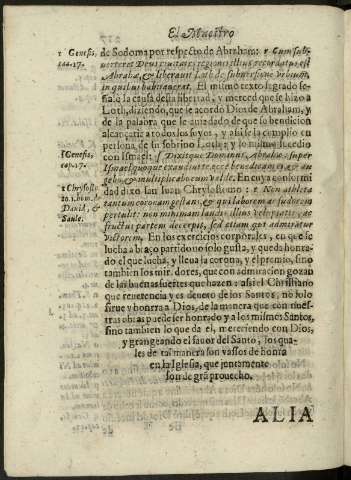 El Maestro
1 Genesis, cap.17.
de Sodoma por respecto de Abraham: 1 Cum sub-
uerteret Deus ciuitates regionis illius recordatus est
Abrahæ, & liberauit Loth de subuersione vrbium,
in quibus habitauerat. El mismo texto sagrado se-
ñala la causa desta libertad, y merced que se hizo a
Loth, diziendo, que se acordo Dios de Abraham, y
de la palabra que le auia dado de que su bendicion
alcançaria a todos los suyos, y assi se la cumplio en
persona, de su sobrino Loth: y lo mismo sucedio
1 Genesis, cap.17.
con Ismael: 1 Dixitque Dominus, Abrahæ, super
Ismael quoque exaudiui te: ecce benedicam ei, & au
gebo, & multiplicabo eum valde. En cuya conformi
1 Chrysosto. to.1. hom. de Dauid, & Saule.
dad dixo san Iuan Chrysostomo: 1 Non athleta
tantum coronam gestans, & qui laborem ac sudorem
pertulit: non minimam laudis illius voluptatis, ac
fructus partem decerpit, sed etiam qui admiratur
victorem. En los exercicios corporales, en que se
lucha a braço partido no solo gusta, y queda honra-
do el que lucha, y lleua la corona, y el premio, sino
tambien los miradores, que con admiracion gozan
de las buenas suertes que hazen: assi el Christiano
que reuerencia y es deuoto de los Santos, no solo
sirue y honra a Dios, de la manera que con nues-
tras obras puede ser honrado y a los mismos Santos,
sino tambien lo queda el, mereciendo con Dios,
y grangeando el fauor del Santo, los qua-
les de tal manera son vassos de honra
en la Iglesia, que juntamente
son de grã prouecho.
ALIA